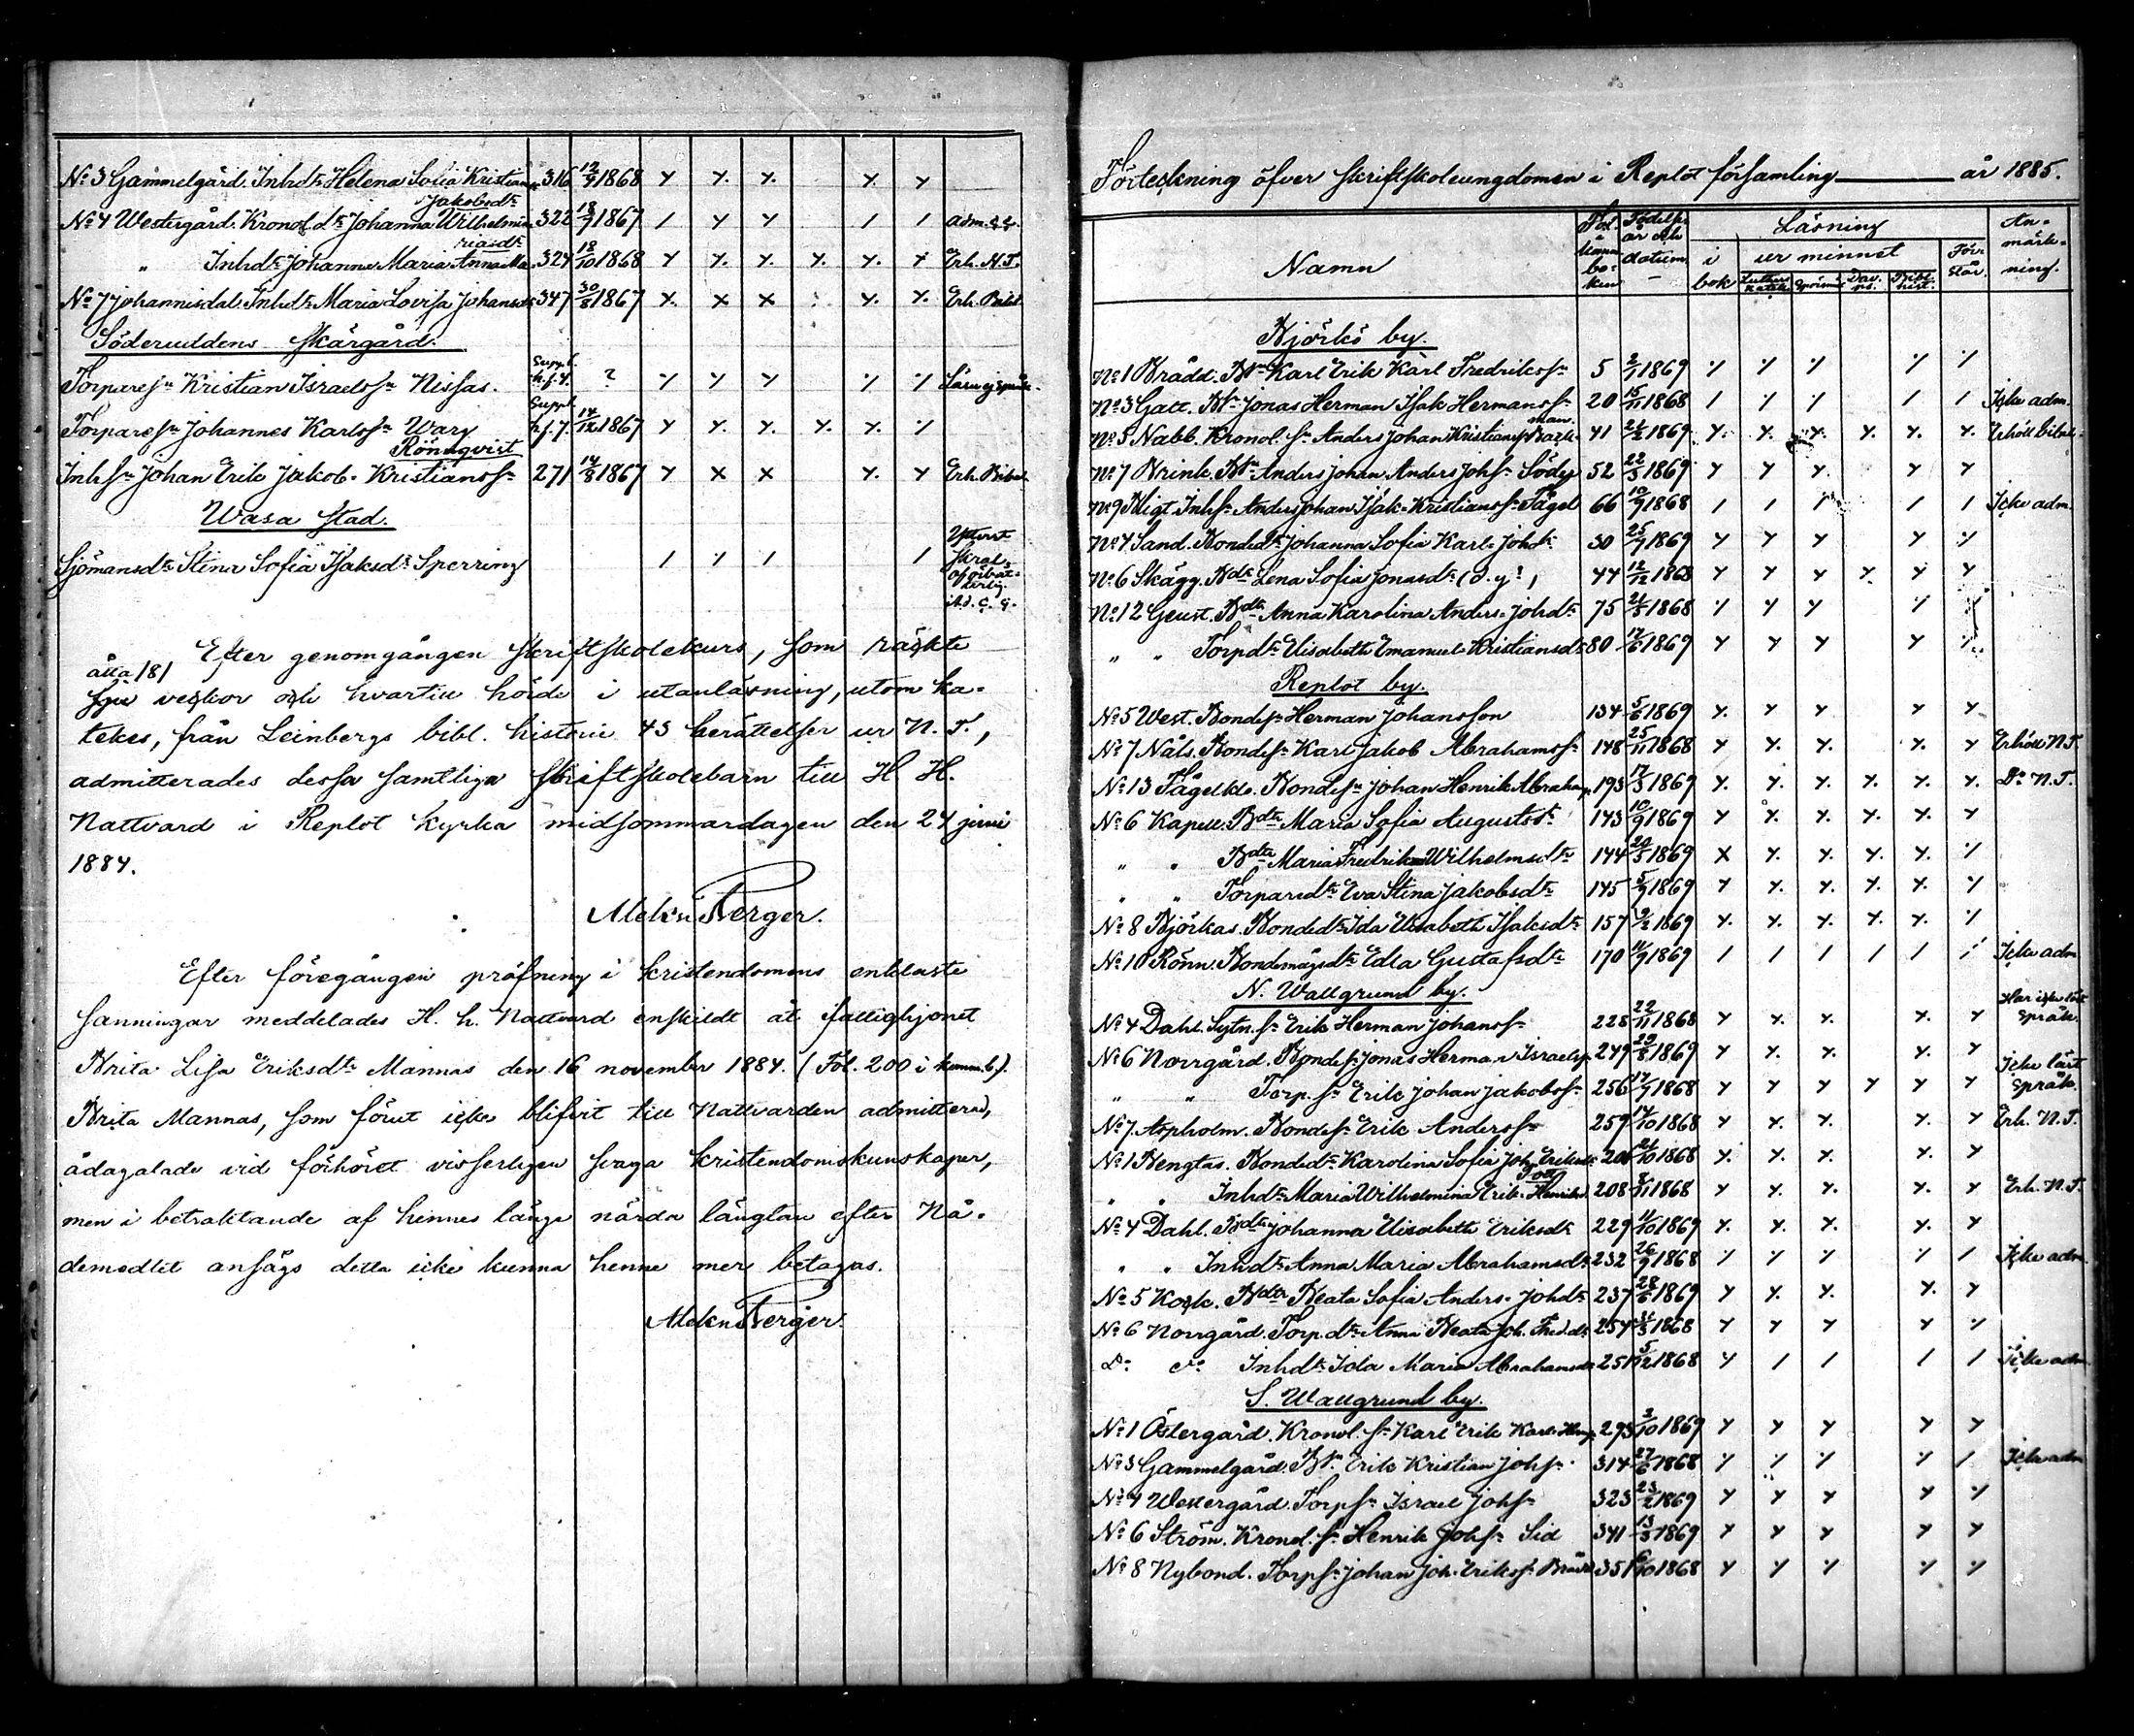 No 3 Gammelgård. Inhdr Helena Sofia Kristians 316 12/9 1868 Y Y. Y. Y. Y
Jakobsdr
No 4 Westergård. Kronol. dr Johanna Wilhelmin 322 18/9 1867 / Y Y / / adm. c. c.
riasdr
" Inhdr Johanna Maria Anna Ma 324 18/10 1868 Y Y. Y. Y. Y. Y Erh. N. T.
No 7 Johannisdal. Inhdr Maria Lovisa Johansdr 347 30/8 1867 Y. X X Y. Y. Erh. Bibel
Söderuddens Skärgård.
Torparesn Kristian Israelssn Nissas. Suppl. h. f. 4. ? Y Y Y Y Y
Torparesn Johannes Karlssn Warg Suppl. h. f. 7. 14/12 1867 Y Y. Y. Y. Y. Y
Rönnqvist
Inhsn Johan Erik Jakob. Kristianssn 271 14/8 1867 Y X X Y. Y Erh. Bibel
Wasa stad.
Sjömansdr Stina Sofia Isaksdr Sperring / Y / / Ytterst skral,
Efter genomgången skriftskolekurs, som räckte
åtta /8/
veckor och hvartill hörde i utanläsning, utom ka-
tekes, från Leinbergs bibl. historie 43 berättelser ur N. T.,
admitterades dessa samtliga skriftskolebarn till H. H.
Nattvard i Replot kyrka midsommardagen den 24 juni
1884.
Alekn Berger.
Efter föregången pröfning i kristendomens enklaste
sanningar meddelades H. h. Nattvard enskildt åt fattighjonet
Brita Lisa Eriksdr Mannas den 16 november 1884. (Fol. 200 i komm.b.).
Brita Mannas, som förut icke blifvit till Nattvarden admitterad,
ådagalade vid förhöret visserligen svaga kristendomskunskaper,
men i betraktande af hennes länge närda längtan efter Nå-
demedlet ansågs detta icke kunna henne mer betagas.
Alekn Berger.
Förteckning öfver skriftskoleungdomen i Replot församling år 1885.
Namn Fol. i kommboken Födelseår och datum. Läsning Anmärkning.
i bok ur minnet Förstår.
Luthers katek. Dav. ps. Bibl. hist.
Björkö by.
No 1 Brädd. Bsn Karl Erik Karl Fredrikssn 5 2/11 1869 Y Y Y Y Y
No 3 Gatt. Bsn Jonas Herman Isak Hermanssn 20 15/11 1868 / / / / / Icke adm.
No 5 Nabb. Kronol. sn Anders Johan Kristianss 41 21/2 1869 Y. Y. Y. Y. Y. Y. Erhöll bibel
No 7 Brink. Bsn Anders Johan Anders Johsn Södy 52 22/3 1869 Y Y Y. Y Y
No 9 Inhsn Anders Johan Isak Kristianssn Fågel 66 10/9 1868 / / / / / Icke adm.
No 4 Sand. Bondedr Johanna Sofia Karl. Johdr 30 25/7 1869 Y Y Y Y Y
No 6 Skägg. Bdr Lena Sofia Jonasdr (d. y.) 44 12/12 1868 Y Y Y Y Y Y
No 12 Geust. Bdtr Anna Karolina Anders. Johdr 75 21/5 1868 Y Y Y Y
" " Torpdr Elisabeth Emanuel Kristiansdr 80 17/6 1869 Y Y Y Y
Replot by.
No 5 West. Bondesn Herman Johansson 134 5/6 1869 Y. Y Y Y Y
No 7 Näls. Bondesn Karl Jakob Abrahamssn 148 25/11 1868 Y Y. Y. Y. Y Erhöll N. T.
No 13 Fågelkl. Bondesn Johan Henrik Abrahams 193 17/3 1869 Y. Y. Y. Y. Y. Y. Do N. T.
No 6 Kapell. Bdtr Maria Sofia Augustsdr 143 10/9 1869 Y Y. Y. Y. Y. Y
" " Bdtr Maria Fredrika Wilhelmsdr 144 20/5 1869 X Y. Y. Y. Y. Y
" " Torparedr Eva Stina Jakobsdr 145 5/9 1869 Y Y. Y. Y. Y. Y
No 8 Björkas. Bondedr Ida Elisabeth Isaksdr 157 9/2 1869 Y. Y. Y. Y. Y. Y
No 10 Rönn. Bondemågsdr Edla Gustafsdr 170 11/9 1869 / / / / / / Icke adm
N. Wallgrund by.
No 4 Dahl. Sytn. sn Erik Herman Johanssn 228 22/11 1868 Y Y. Y. Y. Y Har icke läst språk.
No 6 Norrgård. Bondesn Jonas Herman Israelss 249 20/8 1869 Y Y. Y. Y. Y
" " Torp. sn Erik Johan Jakobssn 256 17/9 1868 Y Y Y Y Y Y Icke läst språk.
No 7. Aspholm. Bondesn Erik Anderssn 259 14/10 1868 Y Y. Y. Y. Y Erh. N. T.
No 1 Bengtas. Bondedr Karolina Sofia Joh. Eriksdr 204 21/10 1868 Y. Y. Y. Y. Y
" " Inhdr Maria Wilhelmina Erik. Henriks 208 8/11 1868 Y Y. Y. Y. Y Erh. N. T.
No 4 Dahl. Bdtr Johanna Elisabeth Eriksdr 229 11/10 1869 Y. Y. Y. Y. Y
" " Inhdr Anna Maria Abrahamsdr 232 26/9 1868 Y Y Y Y / Icke adm.
No 5 Kock. Bdtr Beata Sofia Anders. Johdr 237 28/6 1869 Y Y. Y. Y. Y
No 6 Norrgård. Torp. dr Anna Beata Joh. Fred.dr 254 11/3 1868 Y Y Y Y Y
Do do Inhdr Ida Maria Abrahamsdr 251 5/12 1868 Y / / / / Icke adm
S. Wallgrund by.
No 1 Östergård. Kronol. sn Karl Erik Karl. 293 2/10 1869 Y Y Y Y Y
No 3 Gammelgård. Bsn Erik Kristian Johsn 314 27/6 1868 Y Y Y Y / Icke adm
No 4 Westergård. Torpsn Israel Johsn 323 23/2 1869 Y Y Y Y Y
No 6 Ström. Kronol. sn Henrik Johsn Sid 341 13/3 1869 Y Y Y Y Y
No 8 Nybond. Torpsn Johan Joh. Erikssn 351 6/10 1868 Y Y Y Y Y